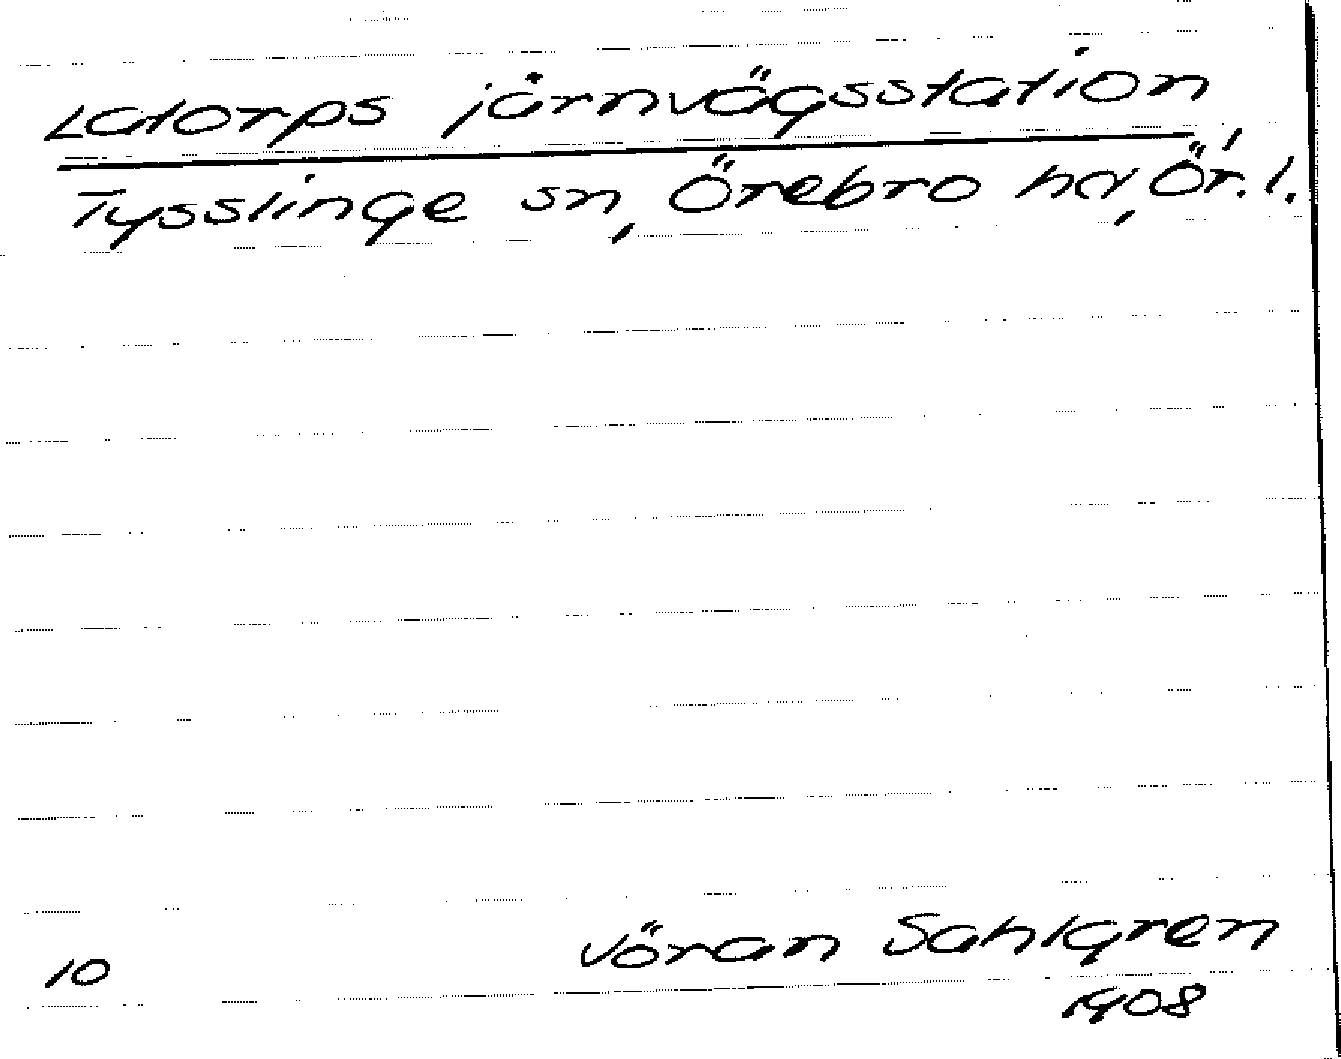 Latorps järnvägsstation
Tysslinge sn, Örebro hd, Ör. l.
10
Jöran Sahlgren
1908